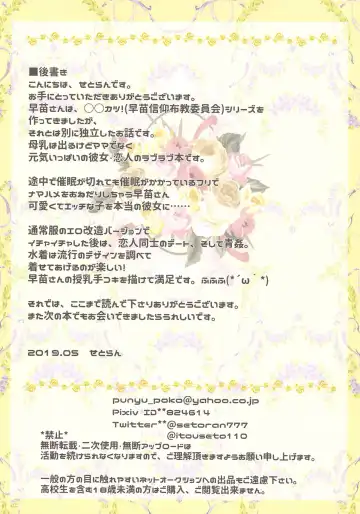 ■後書き
こんにちは、せとらんです。
お手にとっていただきありがとうございます。
早苗さんは、○○カツ!(早苗信仰布教委員会)シリーズを
作ってきましたが、
それとは別に独立したお話です。
母乳は出るけどママでなく
元気いっぱいの彼女・恋人のラブラブ本です。
途中で催眠が切れても催眠がかかっているフリで
ナマハメをおねだりしちゃう早苗さん
可愛くてエッチな子を本当の彼女に…
通常服のエロ改造バージョンで
イチャイチャした後は、恋人同士のデート、そして青姦。
水着は流行のデザインを調べて
着せてあげるのが楽しい!
早苗さんの授乳手コキを描けて満足です。ふふふ(*´ω｀*)
それでは、ここまで読んで下さりありがとうございます。
また次の本でもお会いできましたらうれしいです。
2019.05 せとらん
punyu_poko@yahoo.co.jp
Pixiv ID**824614
Twitter**@setoran777
@itouseto110
*禁止*
無断転載・二次使用・無断アップロードは
活動を続けられなくなりますので、ご理解頂きますようお願い申し上げます。
一般の方の目に触れやすいネットオークションへの出品もご遠慮下さい。
高校生を含む18歳未満の方はご購入、ご閲覧出来ません。